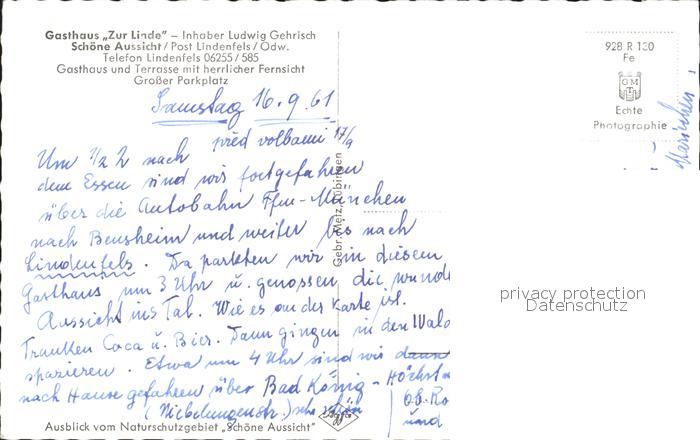 Gasthaus „Zur Linde" – Inhaber Ludwig Gehrisch
Schöne Aussicht / Post Lindenfels / Odw.
Telefon Lindenfels 06255 / 585
Gasthaus und Terrasse mit herrlicher Fernsicht
Großer Parkplatz
928 R 130
Fe
GM
T
Echte
Photographie
Samstag 16.9.61
před volbami 17/9
Um ½ 2 nach
dem Essen sind wir fortgefahren
über die Autobahn Ffm-München
nach Bensheim und weiter bis nach
Lindenfels. Da parkten wir in diesem
Gasthaus um 3 Uhr u. genossen die wunde
Aussicht ins Tal. Wie es an der Karte ist.
Tranken Coca u. Bier. Dann gingen in den Wald
spazieren. Etwa um 4 Uhr sind wir dann
nach Hause gefahren über Bad König - Höchst
(Nibelungenstr.) schön
Ob. Ro
und
Gebr. Metz, Tübingen
privacy protection
Datenschutz
Ausblick vom Naturschutzgebiet „Schöne Aussicht"